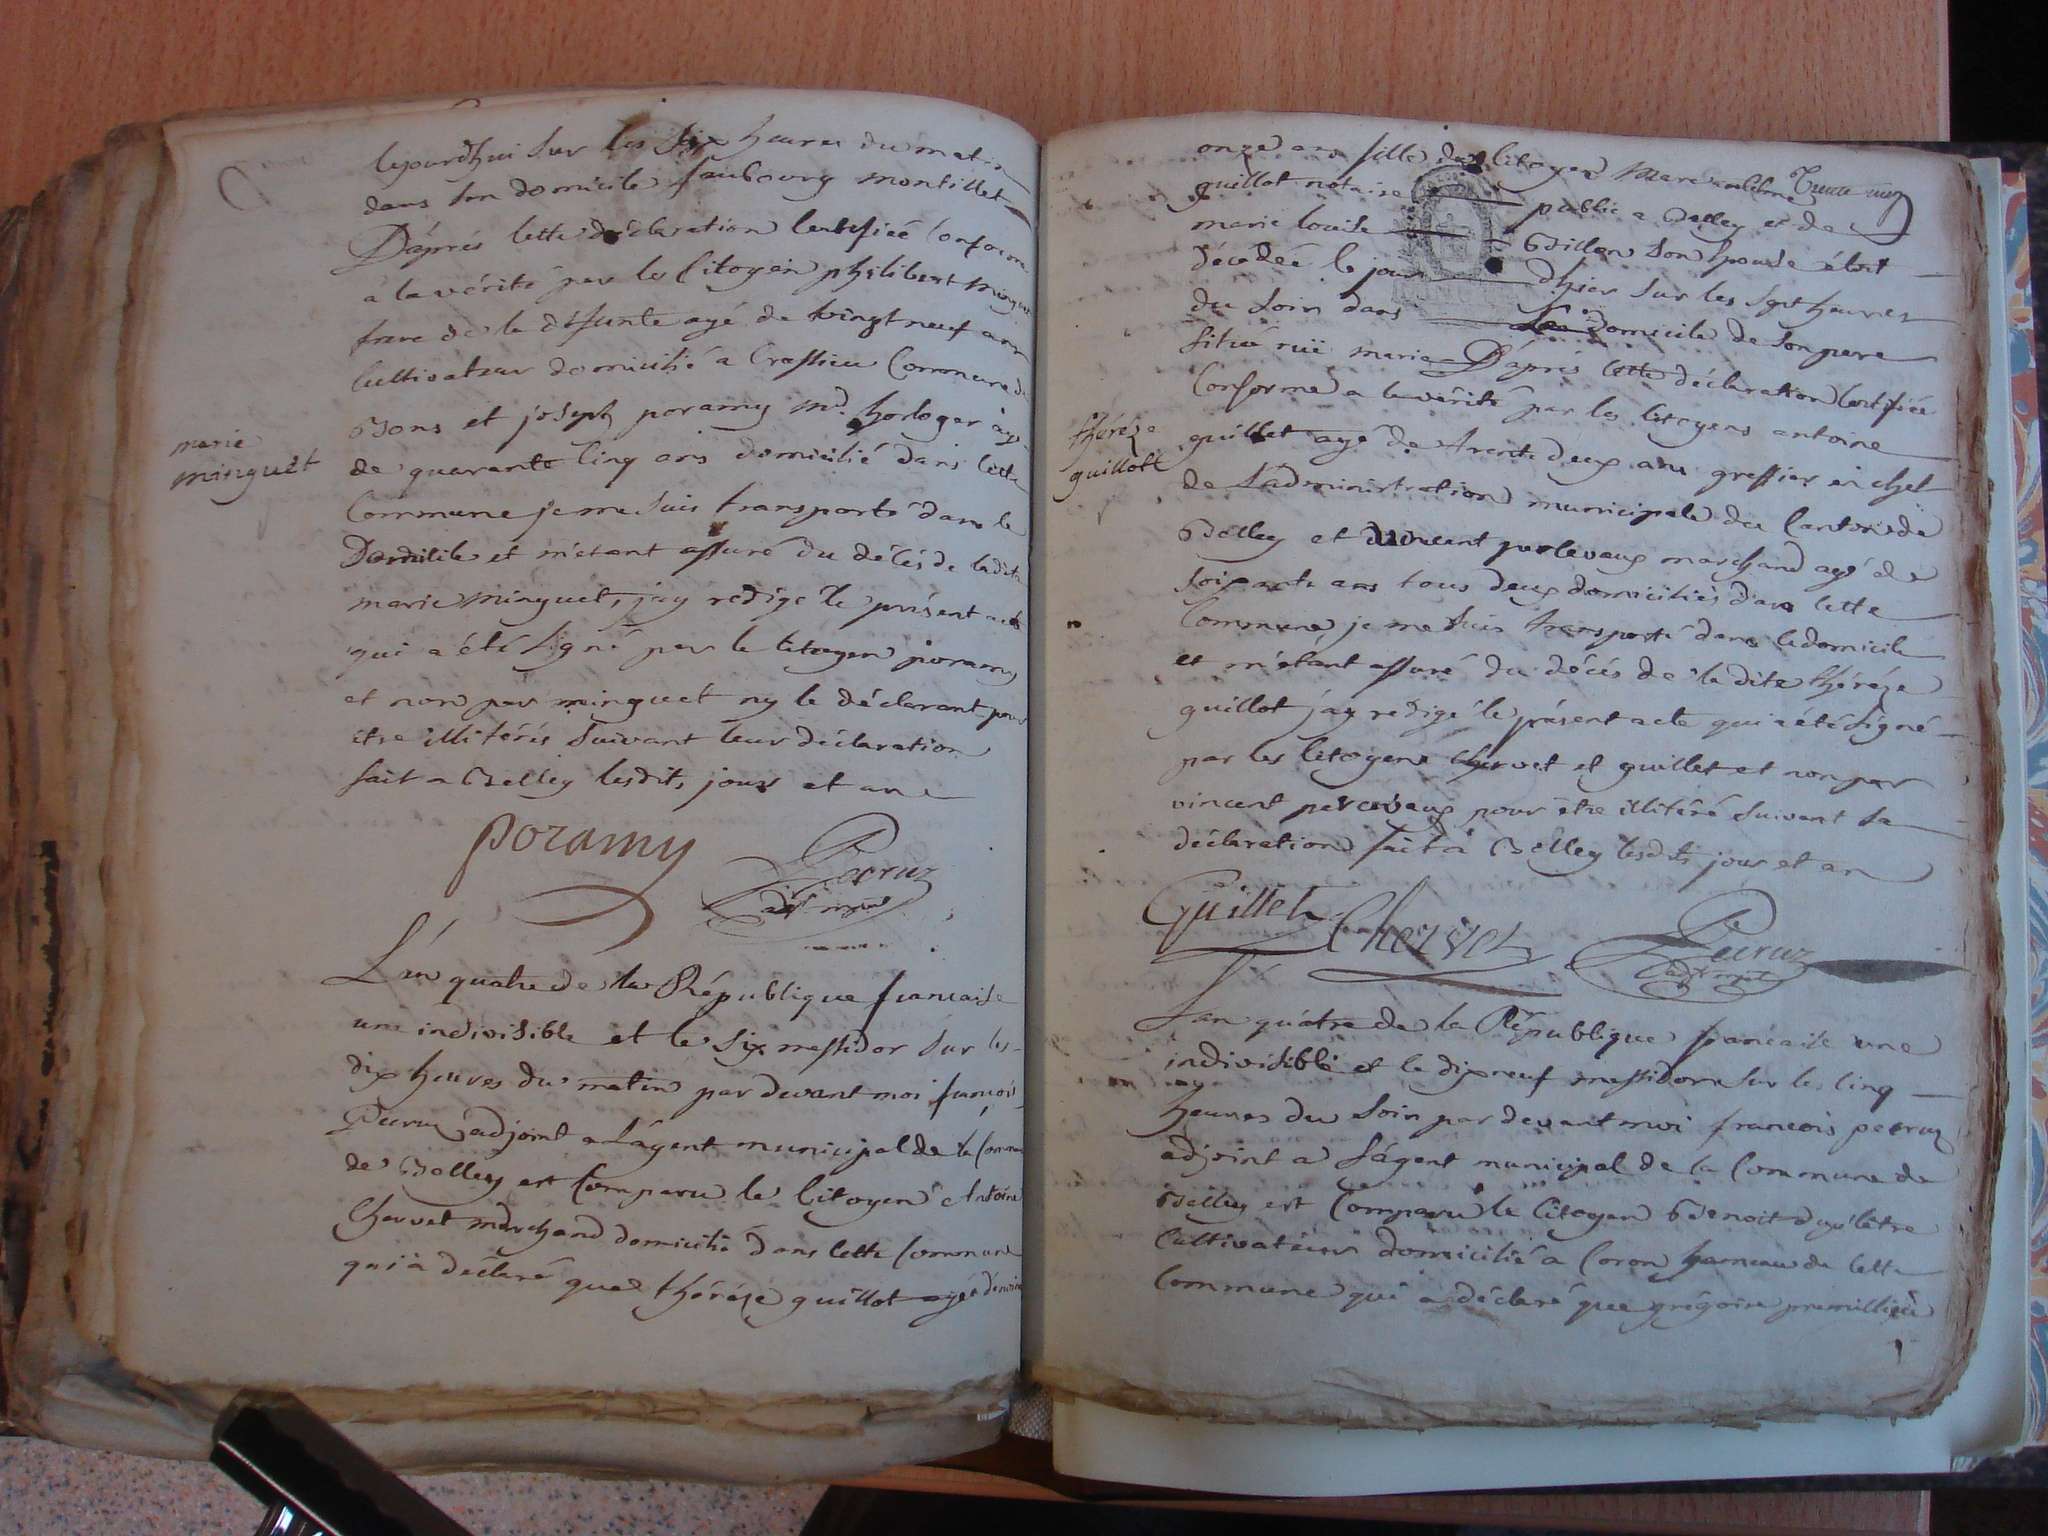 lejourdhui sur les six heures du matin
dans son domicile faubourg montillet
D'après cette déclaration certifiée conforme
à la vérité par les Citoyen philibert minguet
frere de la défunte agé de vingt neuf ans
Cultivateur domicilié a Crassieu Commune de
Bons et joseph poramy md. horloger agé
de quarante Cinq ans domicilié dans Cette
Commune je me suis transporté dans le
Domicile et m'etant assuré du décés de ladite
marie minguet, j'ay redigé le présent acte
qui a été signé par le Citoyen poramy
et non par minguet ny le déclarant pour
être illitérés suivant leur déclaration
fait a Belley lesdits jour et an
marie
minguet
poramy
Pecruz
adjt mpal
L'an quatre de la République francaise
une indivisible et le six messidor sur les
dix heures du matin par devant moi francois
Pecruz adjoint a L'agent municipal de la Commune
de Belley est Comparu le Citoyen Antoine
Chervet marchand domicilié dans Cette Commune
qui à déclaré que thérèze guillot agée d'environ
Trente
onze ans fille du Citoyen Marc anthelme
guillot notaire public a Belley et de
marie louise Billon son epouse étoit
décédée le jour d'hier sur les sept heures
du soir dans le domicile de son pere
situé ruë marie D'après Cette déclaration Certifiée
Conforme a la vérité par les Citoyens antoine
guillet agé de trente deux ans greffier en chef
de L'administration municipale du Canton de
Belley et vincent perceveaux marchand agé de
soixante ans tous deux domiciliés dans Cette
Commune, je me suis transporté dans le domicile
et m'étant assuré du décés de la dite thérèze
guillot j'ay redigé le présent acte qui a été signé
par les Citoyens chervet et guillet et non par
vincent perceveaux pour être illitéré suivant sa
déclaration fait à Belley lesdits jour et an
thérèze
guillott
Guillet
Chervet
Pecruz
adjt mpal
L'an quatre de la République francaise une
indivisible et le dixneuf messidor sur les Cinq
heures du soir par devant moi francois pecruz
adjoint a L'agent municipal de la Commune de
Belley est Comparu le Citoyen Benoit
Cultivateur domicilié a Coron hameau de Cette
Commune qui a déclaré que grégoire premillieu